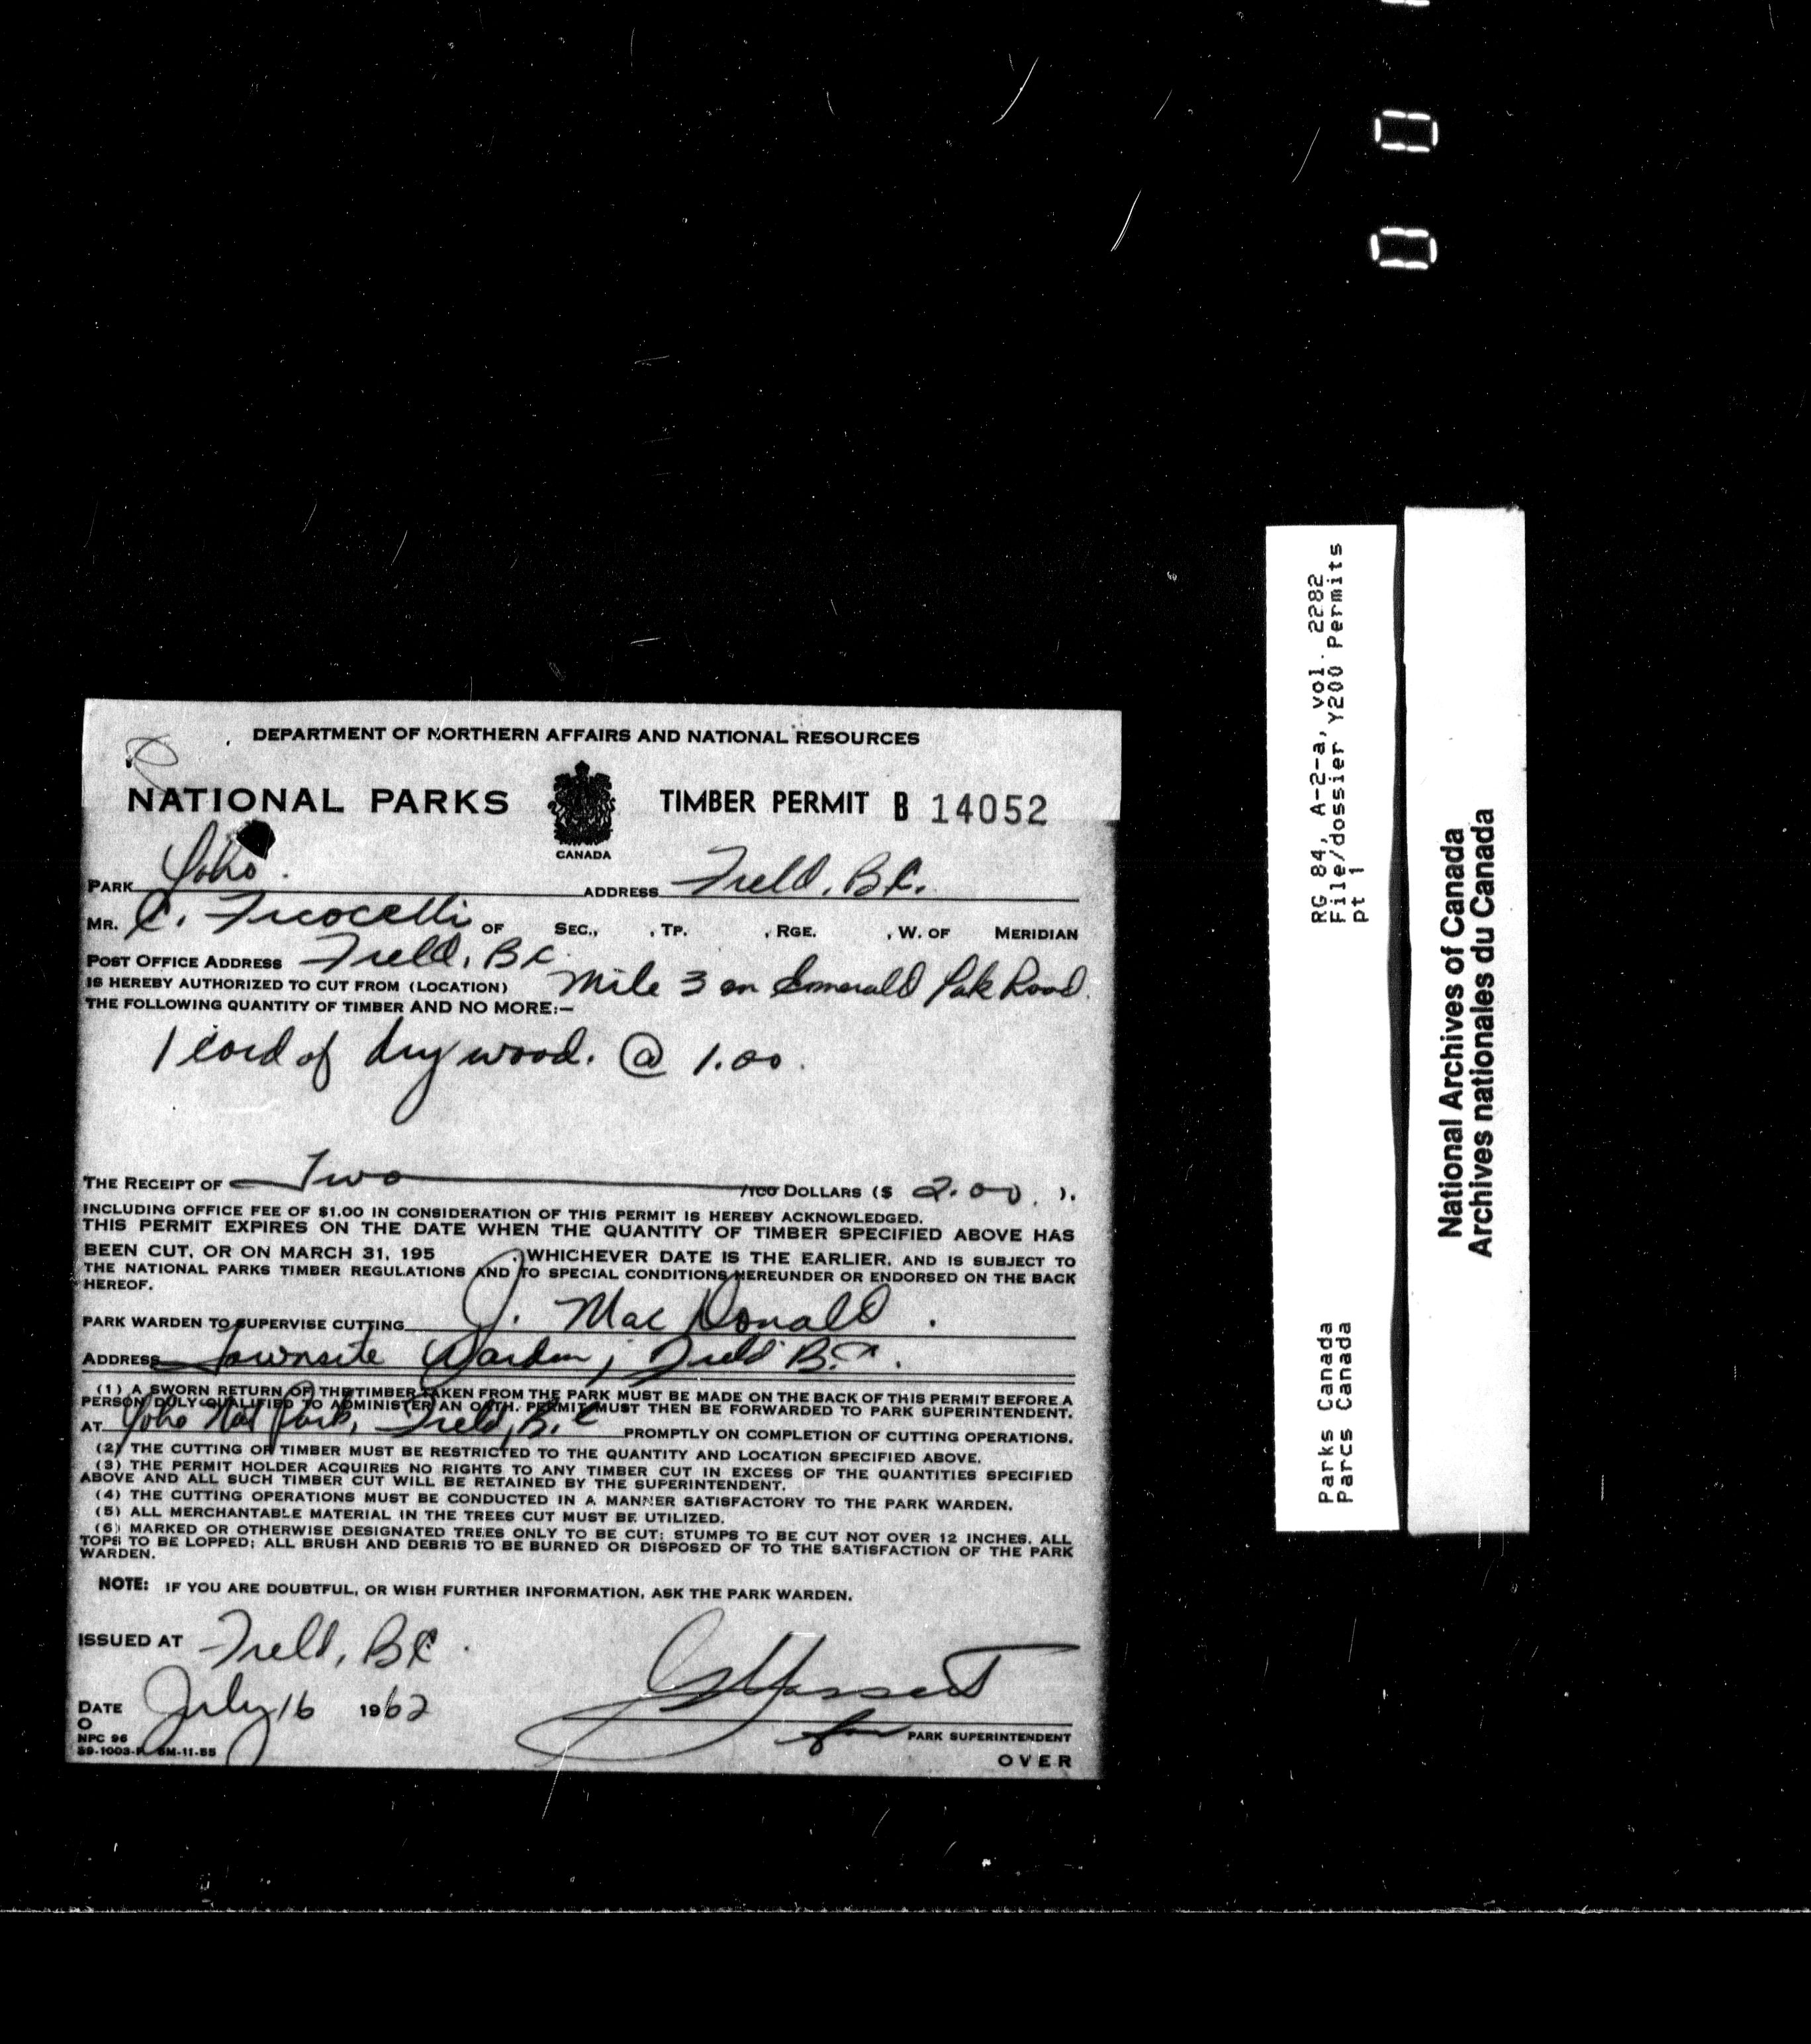 DEPARTMENT OF NORTHERN AFFAIRS AND NATIONAL RESOURCES
NATIONAL PARKS TIMBER PERMIT B 14052
CANADA
PARK Yoho. ADDRESS Field, B.C.
MR. C. Ficocelli OF SEC., , TP. , RGE. , W. OF MERIDIAN
POST OFFICE ADDRESS Field, B.C.
IS HEREBY AUTHORIZED TO CUT FROM (LOCATION) Mile 3 on Emerald Lake Road.
THE FOLLOWING QUANTITY OF TIMBER AND NO MORE:—
1 cord of dry wood. @ 1.00.
THE RECEIPT OF Two /100 DOLLARS ($ 2.00. ).
INCLUDING OFFICE FEE OF $1.00 IN CONSIDERATION OF THIS PERMIT IS HEREBY ACKNOWLEDGED.
THIS PERMIT EXPIRES ON THE DATE WHEN THE QUANTITY OF TIMBER SPECIFIED ABOVE HAS
BEEN CUT, OR ON MARCH 31, 195 , WHICHEVER DATE IS THE EARLIER, AND IS SUBJECT TO
THE NATIONAL PARKS TIMBER REGULATIONS AND TO SPECIAL CONDITIONS HEREUNDER OR ENDORSED ON THE BACK
HEREOF.
PARK WARDEN TO SUPERVISE CUTTING J. MacDonald.
ADDRESS Townsite Warden, Field B.C.
(1) A SWORN RETURN OF THE TIMBER TAKEN FROM THE PARK MUST BE MADE ON THE BACK OF THIS PERMIT BEFORE A
PERSON DULY QUALIFIED TO ADMINISTER AN OATH. PERMIT MUST THEN BE FORWARDED TO PARK SUPERINTENDENT.
AT Yoho Nat Park, Field, B.C PROMPTLY ON COMPLETION OF CUTTING OPERATIONS.
(2) THE CUTTING OF TIMBER MUST BE RESTRICTED TO THE QUANTITY AND LOCATION SPECIFIED ABOVE.
(3) THE PERMIT HOLDER ACQUIRES NO RIGHTS TO ANY TIMBER CUT IN EXCESS OF THE QUANTITIES SPECIFIED
ABOVE AND ALL SUCH TIMBER CUT WILL BE RETAINED BY THE SUPERINTENDENT.
(4) THE CUTTING OPERATIONS MUST BE CONDUCTED IN A MANNER SATISFACTORY TO THE PARK WARDEN.
(5) ALL MERCHANTABLE MATERIAL IN THE TREES CUT MUST BE UTILIZED.
(6) MARKED OR OTHERWISE DESIGNATED TREES ONLY TO BE CUT; STUMPS TO BE CUT NOT OVER 12 INCHES. ALL
TOPS TO BE LOPPED; ALL BRUSH AND DEBRIS TO BE BURNED OR DISPOSED OF TO THE SATISFACTION OF THE PARK
WARDEN.
NOTE: IF YOU ARE DOUBTFUL, OR WISH FURTHER INFORMATION, ASK THE PARK WARDEN.
ISSUED AT Field, B.C.
DATE July 16 1962
for PARK SUPERINTENDENT
O
NPC 96
OVER
RG 84, A-2-a, vol. 2282
File/dossier Y200 Permits
Pt 1
Parks Canada
Parcs Canada
National Archives of Canada
Archives nationales du Canada